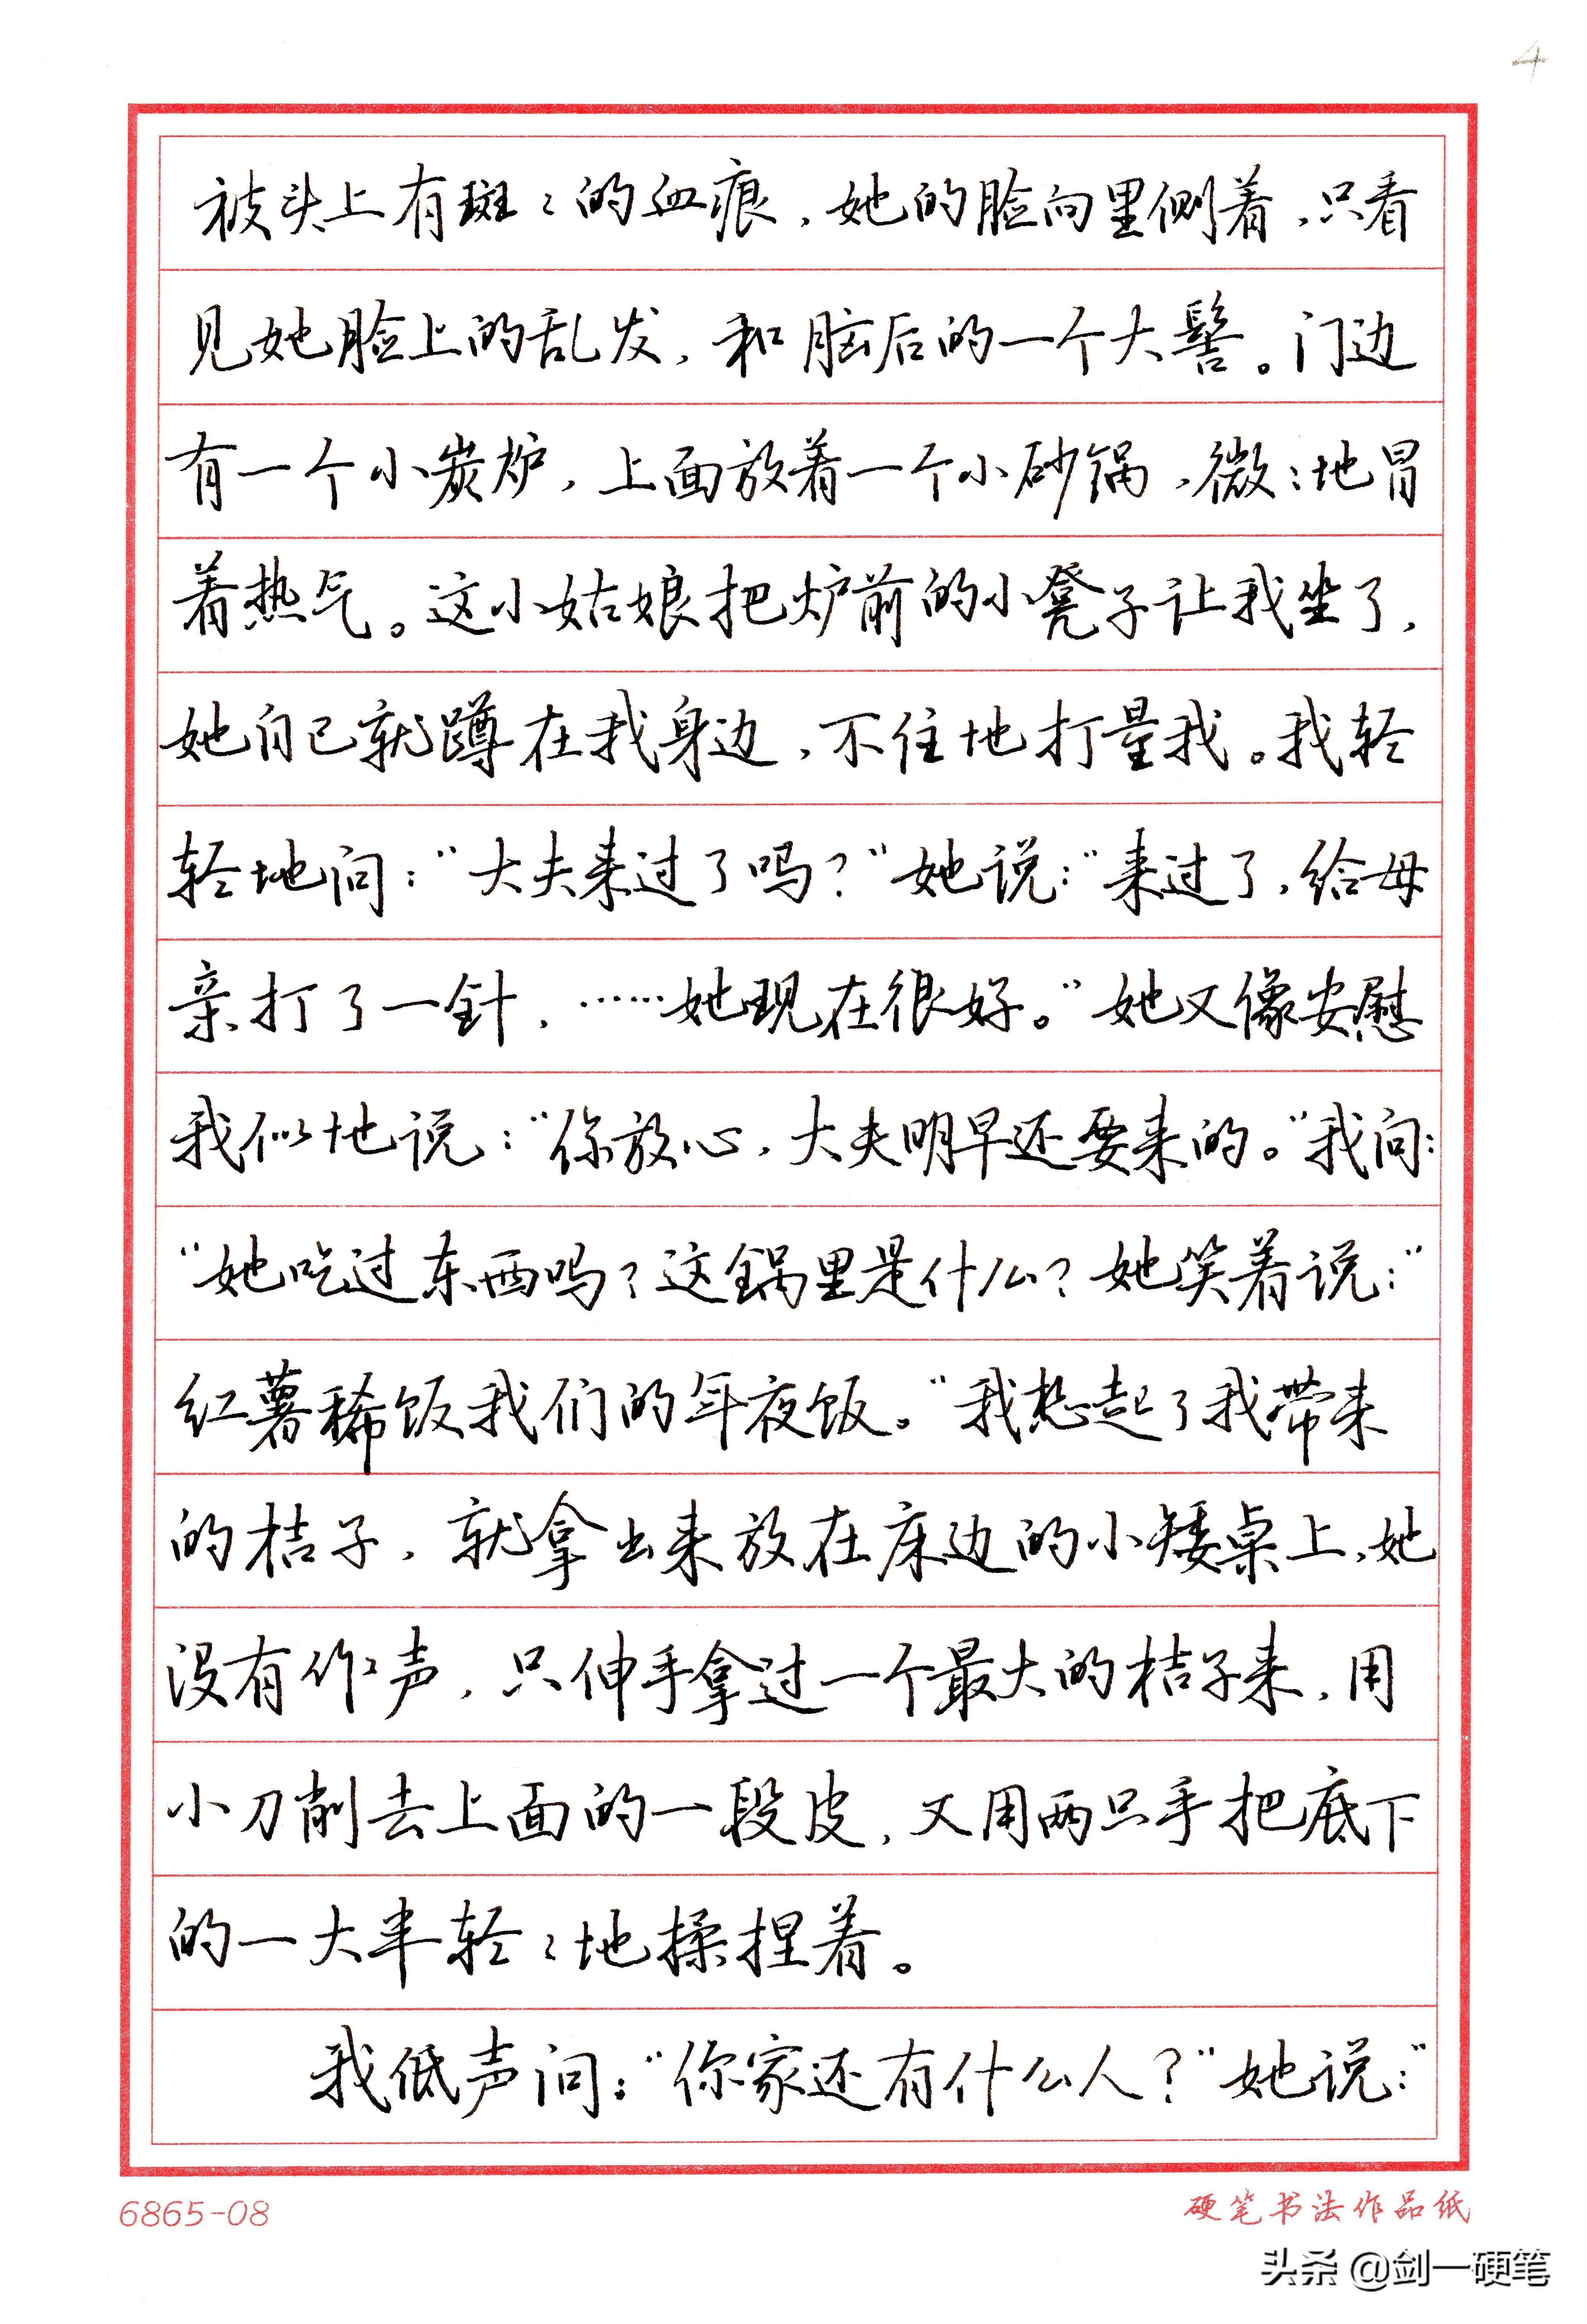 4
被头上有斑々的血痕，她的脸向里侧着，只看
见她脸上的乱发，和脑后的一个大髻。门边
有一个小炭炉，上面放着一个小砂锅，微：地冒
着热气。这小姑娘把炉前的小凳子让我坐了，
她自己就蹲在我身边，不住地打量我。我轻
轻地问：“大夫来过了吗？”她说：“来过了，给母
亲打了一针，……她现在很好。”她又像安慰
我似地说：“你放心，大夫明早还要来的。”我问：
“她吃过东西吗？这锅里是什么？她笑着说：“
红薯稀饭我们的年夜饭。”我想起了我带来
的桔子，就拿出来放在床边的小矮桌上，她
没有作声，只伸手拿过一个最大的桔子来，用
小刀削去上面的一段皮，又用两只手把底下
的一大半轻々地揉捏着。
我低声问：“你家还有什么人？”她说：“
6865-08
硬笔书法作品纸
头条 @剑一硬笔